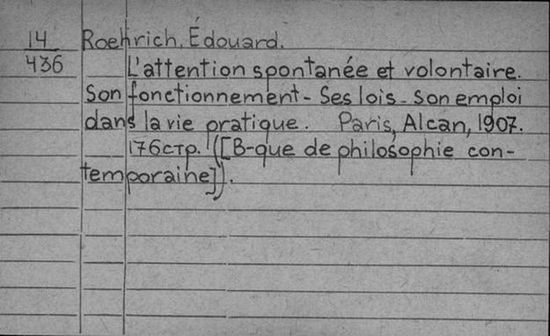 14
436
Roehrich, Édouard.
L'attention spontanée et volontaire.
Son fonctionnement - Ses lois - Son emploi
dans la vie pratique. Paris, Alcan, 1907.
176 стр. ([B-que de philosophie con-
temporaine]).